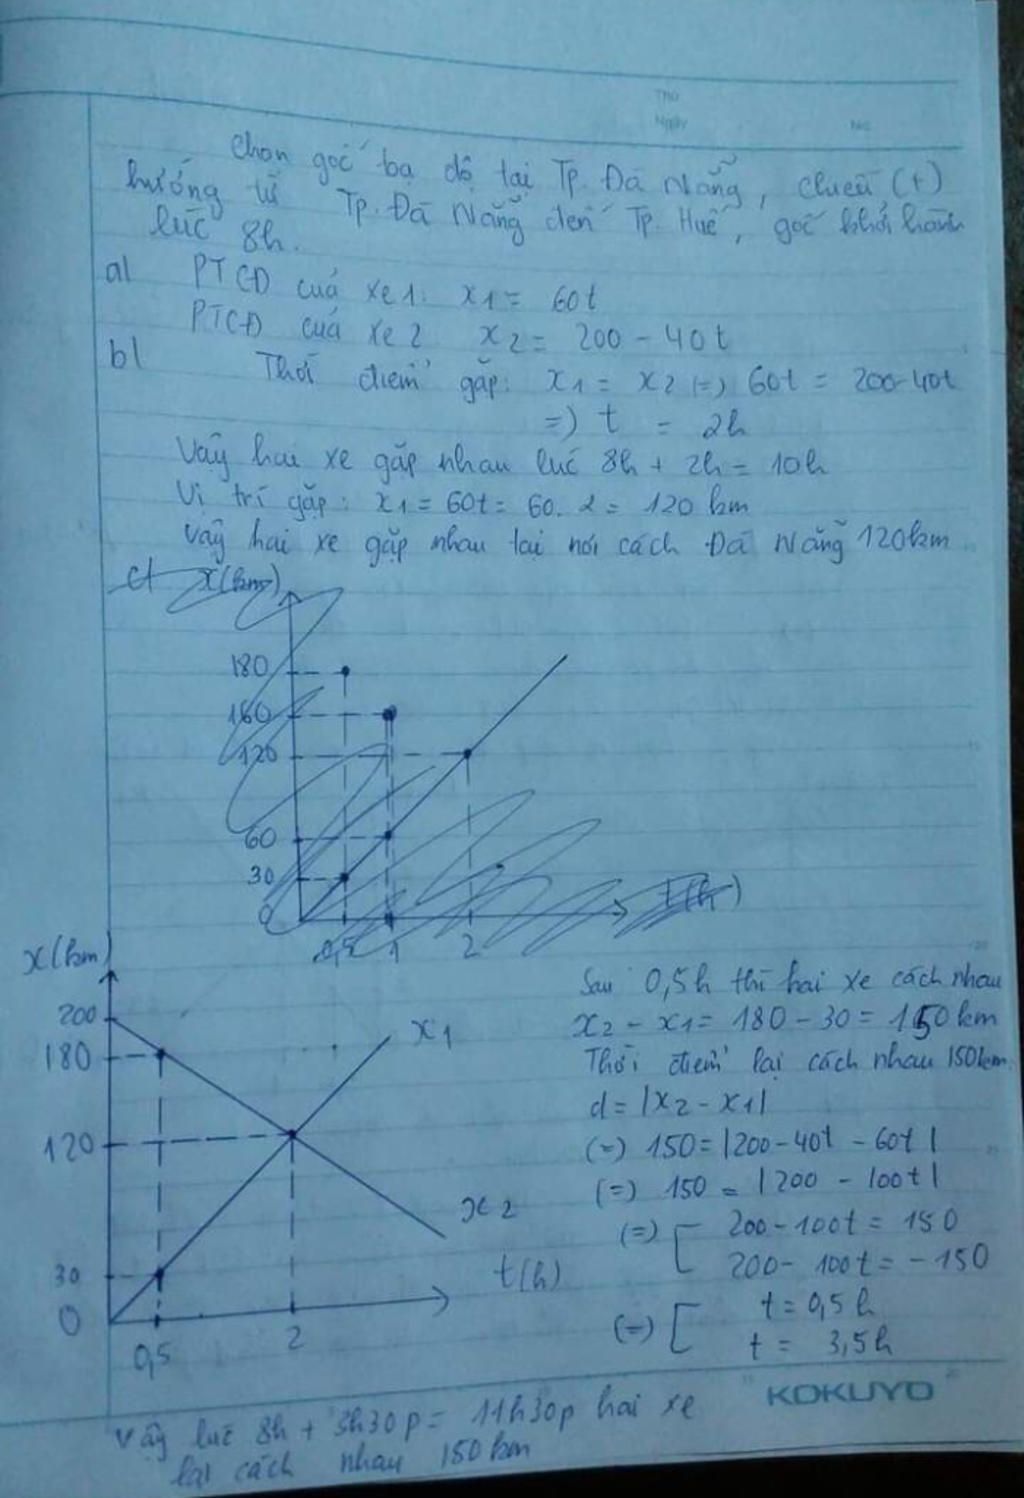 Thứ
Ngày No.
Chọn gốc tọa độ tại Tp. Đà Nẵng, chiều (+)
hướng từ Tp. Đà Nẵng đến Tp. Huế, gốc khởi hành
lúc 8h.
a/ PTCĐ của xe 1: x1 = 60t
PTCĐ của xe 2 x2 = 200 - 40t
b/ Thời điểm gặp: x1 = x2 (=) 60t = 200-40t
=) t = 2h
Vậy hai xe gặp nhau lúc 8h + 2h = 10h
Vị trí gặp: x1 = 60t = 60. 2 = 120 km
Vậy hai xe gặp nhau tại nơi cách Đà Nẵng 120km
c/ x(km)
180
160
120
60
30
0
0,5 1 2 t(h)
x(km)
200
180
120
30
0
0,5 2
x1
x2
t(h)
Sau 0,5h thì hai xe cách nhau
x2 - x1 = 180 - 30 = 150km
Thời điểm lại cách nhau 150km
d = |x2 - x1|
(=) 150 = |200-40t - 60t|
(=) 150 = |200 - 100t|
(=) [ 200-100t = 150
200- 100t = -150
(=) [ t = 0,5h
t = 3,5h
KOKUYO
Vậy lúc 8h + 3h30p = 11h30p hai xe
lại cách nhau 150km